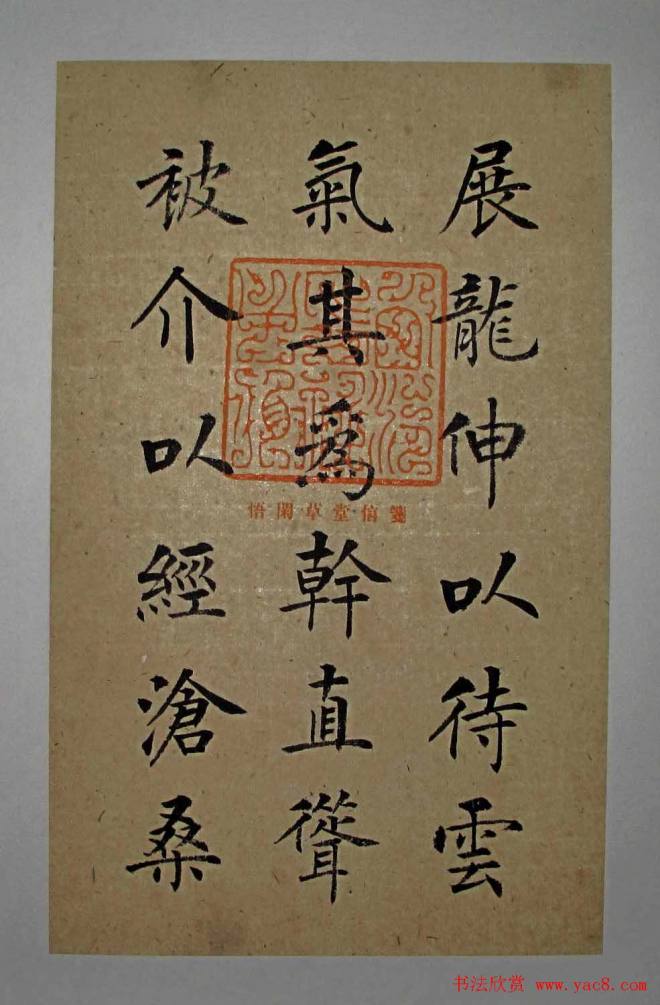 展龍伸以待雲
氣其爲幹直聳
被介以經滄桑
箋信堂草閑悟
书法欣赏 www.yac8.com